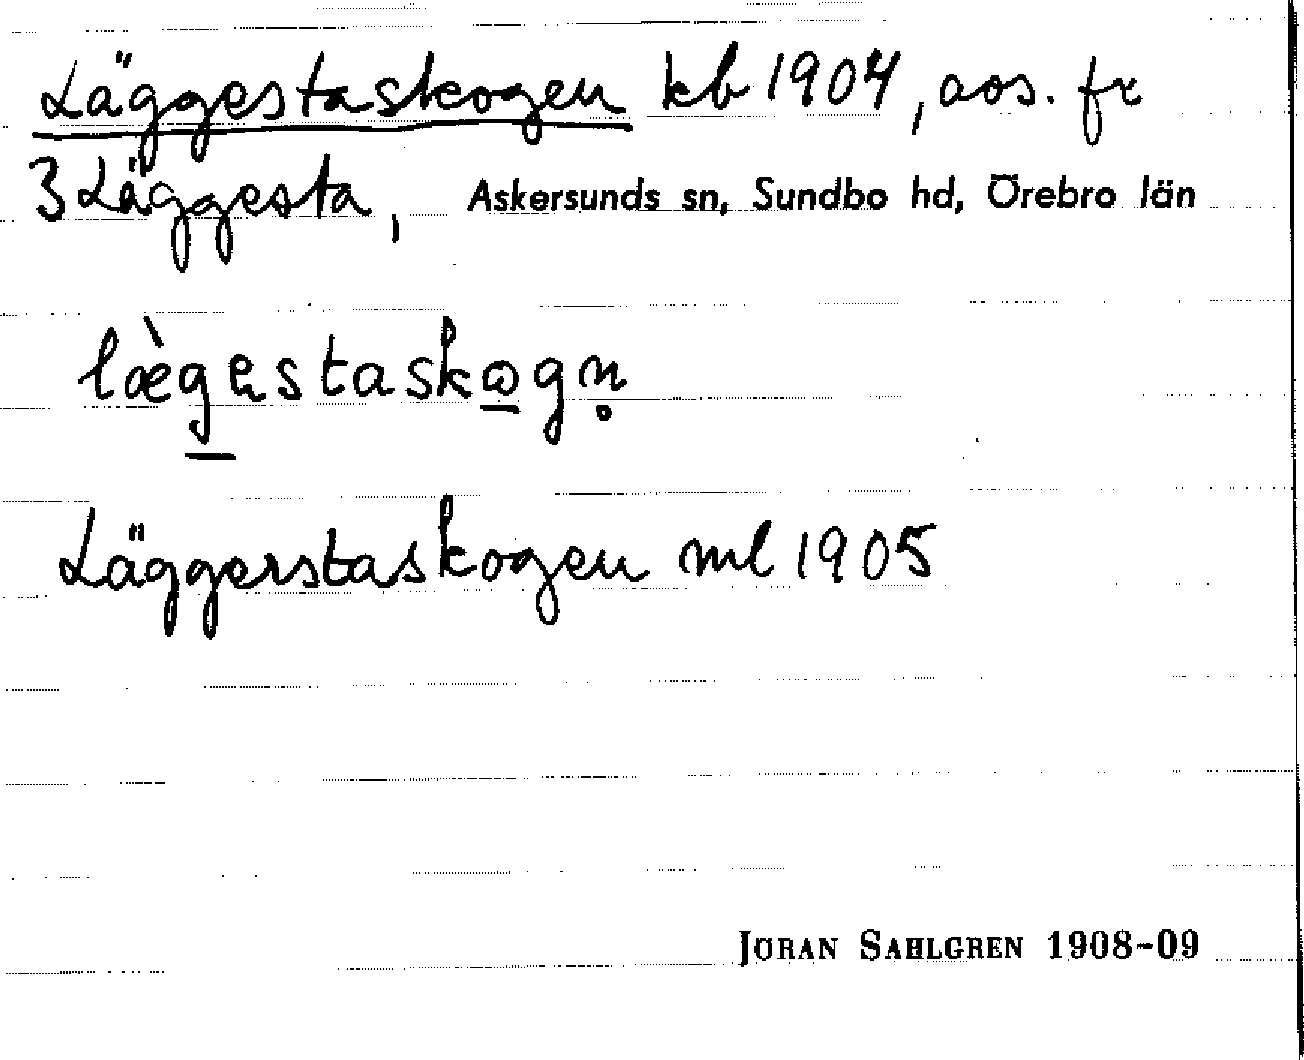 Läggestaskogen kb 1904, aos. fr
3 Läggesta, Askersunds sn, Sundbo hd, Örebro län
læ̀g̲ɛstaskɷ̲gn̥
Läggerstaskogen ml 1905
JÖRAN SAHLGREN 1908-09